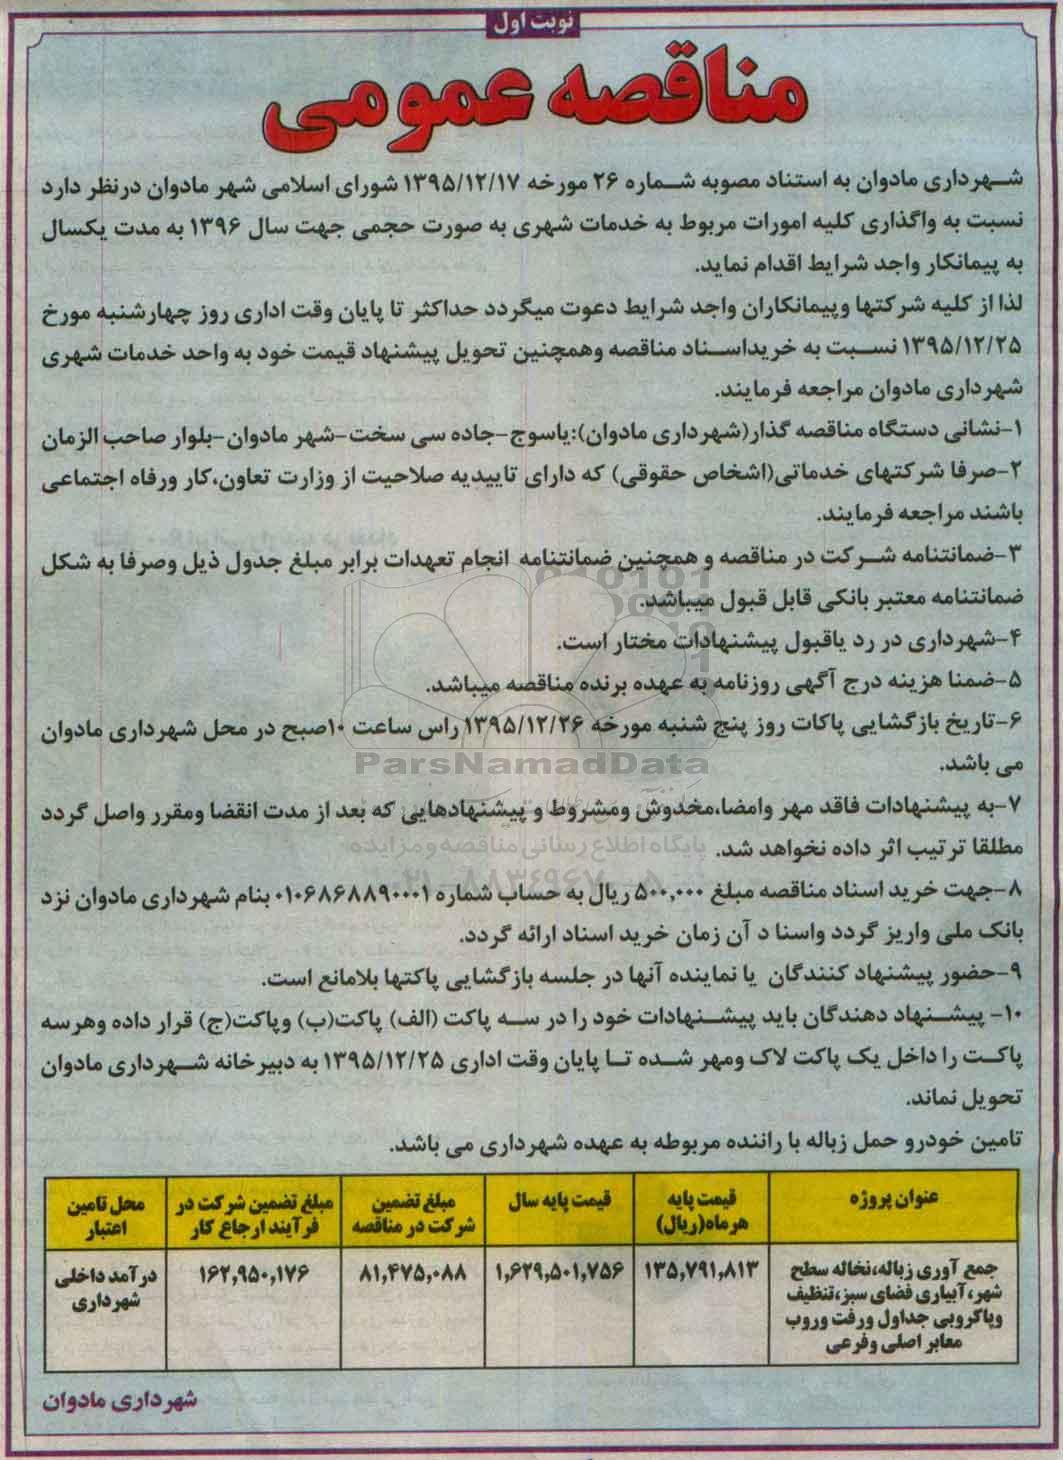 نوبت اول
مناقصه عمومی
شهرداری مادوان به استناد مصوبه شماره ۲۶ مورخه ۱۳۹۵/۱۲/۱۷ شورای اسلامی شهر مادوان درنظر دارد
نسبت به واگذاری کلیه امورات مربوط به خدمات شهری به صورت حجمی جهت سال ۱۳۹۶ به مدت یکسال
به پیمانکار واجد شرایط اقدام نماید.
لذا از کلیه شرکتها وپیمانکاران واجد شرایط دعوت میگردد حداکثر تا پایان وقت اداری روز چهارشنبه مورخ
۱۳۹۵/۱۲/۲۵ نسبت به خریداسناد مناقصه وهمچنین تحویل پیشنهاد قیمت خود به واحد خدمات شهری
شهرداری مادوان مراجعه فرمایند.
۱-نشانی دستگاه مناقصه گذار(شهرداری مادوان):یاسوج-جاده سی سخت-شهر مادوان-بلوار صاحب الزمان
۲-صرفا شرکتهای خدماتی(اشخاص حقوقی) که دارای تاییدیه صلاحیت از وزارت تعاون،کار ورفاه اجتماعی
باشند مراجعه فرمایند.
۳-ضمانتنامه شرکت در مناقصه و همچنین ضمانتنامه انجام تعهدات برابر مبلغ جدول ذیل وصرفا به شکل
ضمانتنامه معتبر بانکی قابل قبول میباشد.
۴-شهرداری در رد یاقبول پیشنهادات مختار است.
۵-ضمنا هزینه درج آگهی روزنامه به عهده برنده مناقصه میباشد.
۶-تاریخ بازگشایی پاکات روز پنج شنبه مورخه ۱۳۹۵/۱۲/۲۶ راس ساعت ۱۰صبح در محل شهرداری مادوان
می باشد.
ParsNamadData
۷-به پیشنهادات فاقد مهر وامضا،مخدوش ومشروط و پیشنهادهایی که بعد از مدت انقضا ومقرر واصل گردد
مطلقا ترتیب اثر داده نخواهد شد.
پایگاه اطلاع رسانی مناقصه و مزایده
۸-جهت خرید اسناد مناقصه مبلغ ۵۰۰,۰۰۰ ریال به حساب شماره ۰۱۰۶۸۶۸۸۹۰۰۰۱ بنام شهرداری مادوان نزد
بانک ملی واریز گردد واسنا د آن زمان خرید اسناد ارائه گردد.
۹-حضور پیشنهاد کنندگان یا نماینده آنها در جلسه بازگشایی پاکتها بلامانع است.
۱۰- پیشنهاد دهندگان باید پیشنهادات خود را در سه پاکت (الف) پاکت(ب) وپاکت(ج) قرار داده وهرسه
پاکت را داخل یک پاکت لاک ومهر شده تا پایان وقت اداری ۱۳۹۵/۱۲/۲۵ به دبیرخانه شهرداری مادوان
تحویل نماند.
تامین خودرو حمل زباله با راننده مربوطه به عهده شهرداری می باشد.
عنوان پروژه
قیمت پایه
هرماه(ریال)
قیمت پایه سال
مبلغ تضمین
شرکت در مناقصه
مبلغ تضمین شرکت در
فرآیند ارجاع کار
محل تامین
اعتبار
جمع آوری زباله،نخاله سطح
شهر،آبیاری فضای سبز،تنظیف
وپاکروبی جداول ورفت وروب
معابر اصلی وفرعی
۱۳۵,۷۹۱,۸۱۳
۱,۶۲۹,۵۰۱,۷۵۶
۸۱,۴۷۵,۰۸۸
۱۶۲,۹۵۰,۱۷۶
درآمد داخلی
شهرداری
شهرداری مادوان